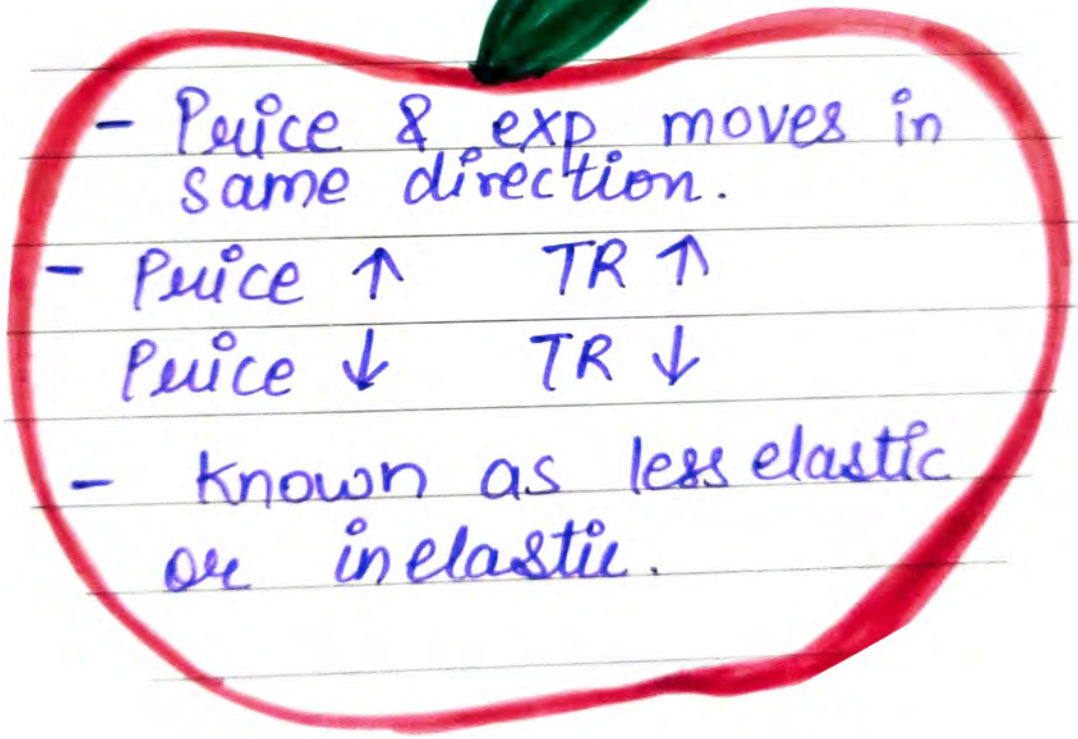 - Price & exp moves in
same direction.
- Price ↑ TR ↑
Price ↓ TR ↓
- Known as less elastic
or inelastic.